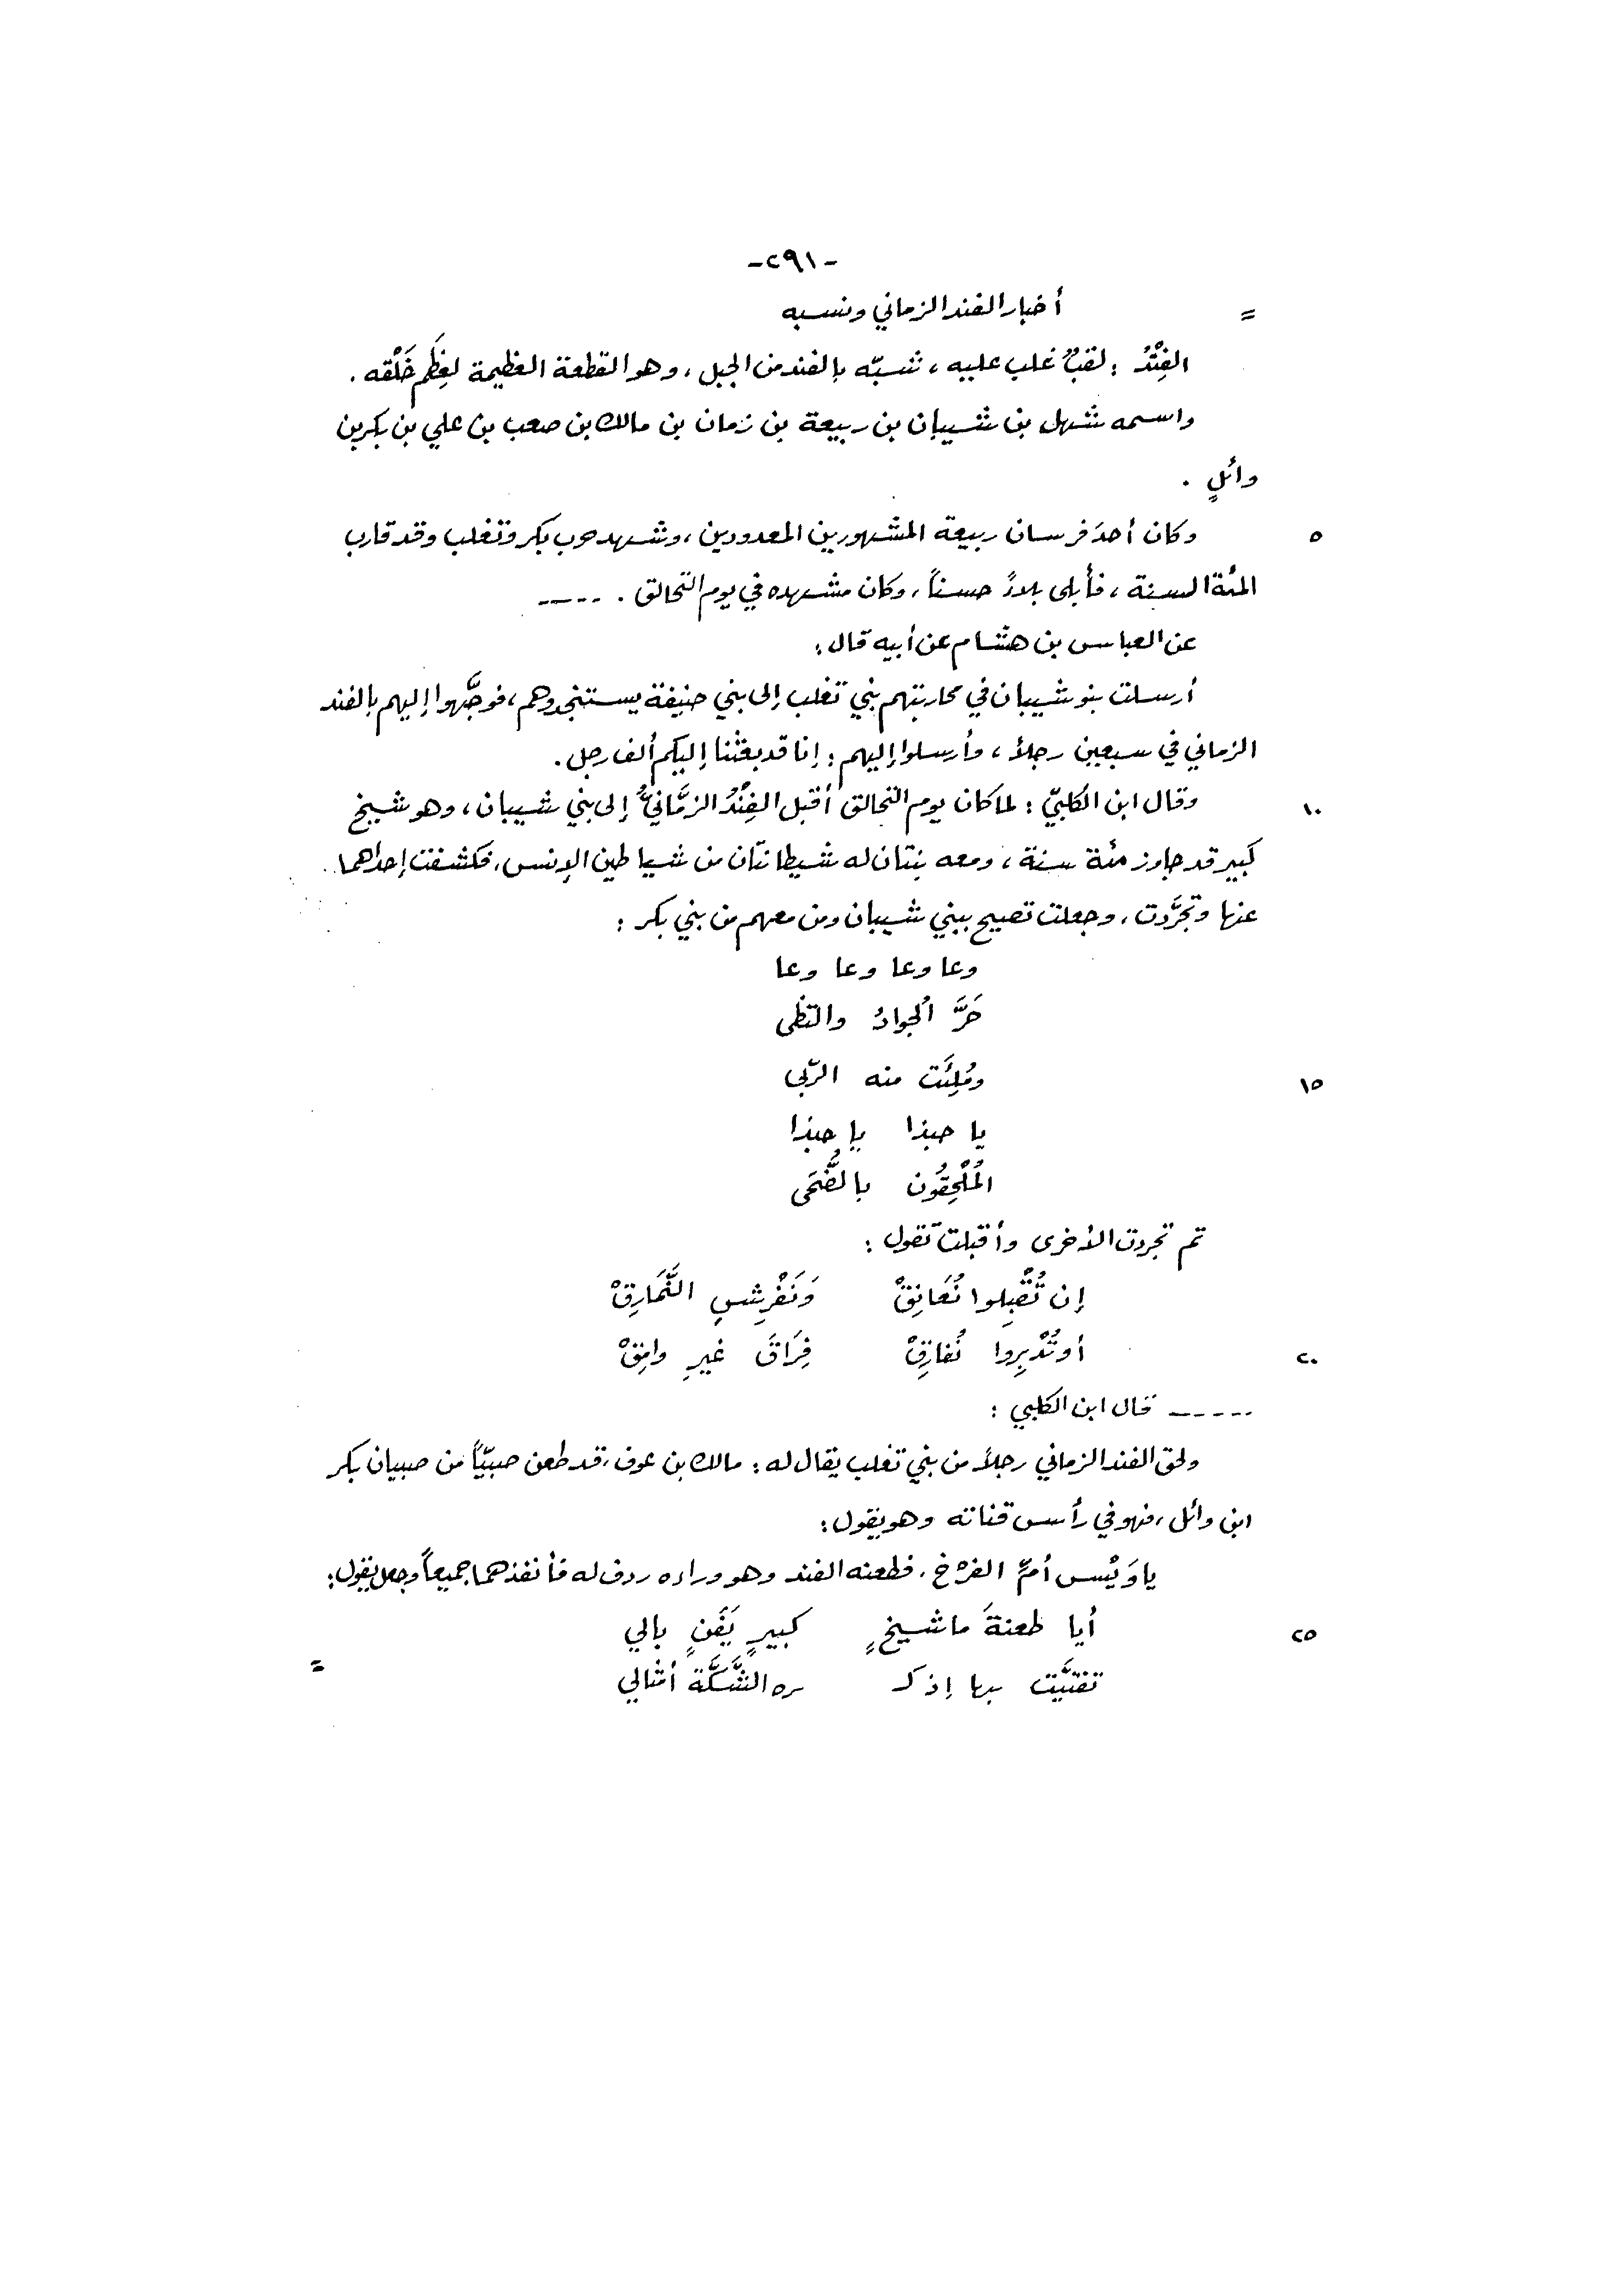 -٢٩١-
= أخبار الفند الزماني ونسبه
الفِنْدُ : لقبٌ غلب عليه ، شبّه بالفند من الجبل ، وهو القطعة العظيمة لعِظَم خَلْقه .
واسمه شهل بن شيبان بن ربيعة بن زمان بن مالك بن صعب بن علي بن بكر بن
وائلٍ .
٥ وكان أحدَ فرسان ربيعة المشهورين المعدودين ، وشهد حرب بكر وتغلب وقد قارب
المئة السنة ، فأبلى بلاءً حسناً ، وكان مشهده في يوم التحالق . -----
عن العباس بن هشام عن أبيه قال :
أرسلت بنو شيبان في محاربتهم بني تغلب إلى بني حنيفة يستنجدوهم ، فوجَّهوا إليهم بالفند
الزماني في سبعين رجلاً ، وأرسلوا إليهم : إنا قد بعثنا إليكم ألف رجل .
١٠ وقال ابن الكلبيّ : لما كان يوم التحالق أقبل الفِنْدُ الزمَّانيُّ إلى بني شيبان ، وهو شيخ
كبير قد جاوز مئة سنة ، ومعه بنتان له شيطانتان من شياطين الإنس ، فكشفت إحداهما
عنها وتجرَّدت ، وجعلت تصيح ببني شيبان ومن معهم من بني بكر :
وعا وعا وعا وعا
حَرَّ الجوادُ والتظى
١٥ ومُلِئَت منه الرّبى
يا حبذا يا حبذا
المُلْحِقُون بالضُّحَى
ثم تجردت الأخرى وأقبلت تقول :
إن تُقْبِلوا نُعَانِقْ وَنَفْرِشِ النَّمَارِقْ
٢٠ أو تُدْبِروا نُفارِقْ فِرَاقَ غيرِ وامِقْ
----- قال ابن الكلبي :
ولحق الفند الزماني رجلاً من بني تغلب يقال له : مالك بن عوف ، قد طعن صبيّاً من صبيان بكر
ابن وائل ، فهو في رأس قناته وهو يقول :
يا وَيْس أمَّ الفرْخ . فطعنه الفند وهو وراءه ردف له فأنفذهما جميعاً وجعل يقول :
٢٥ أيا طعنةَ ما شيخٍ كبيرٍ يَفَنٍ بالي
تفتيَّت بها إذ كـ ـره الشَّكَّة أمثالي
=